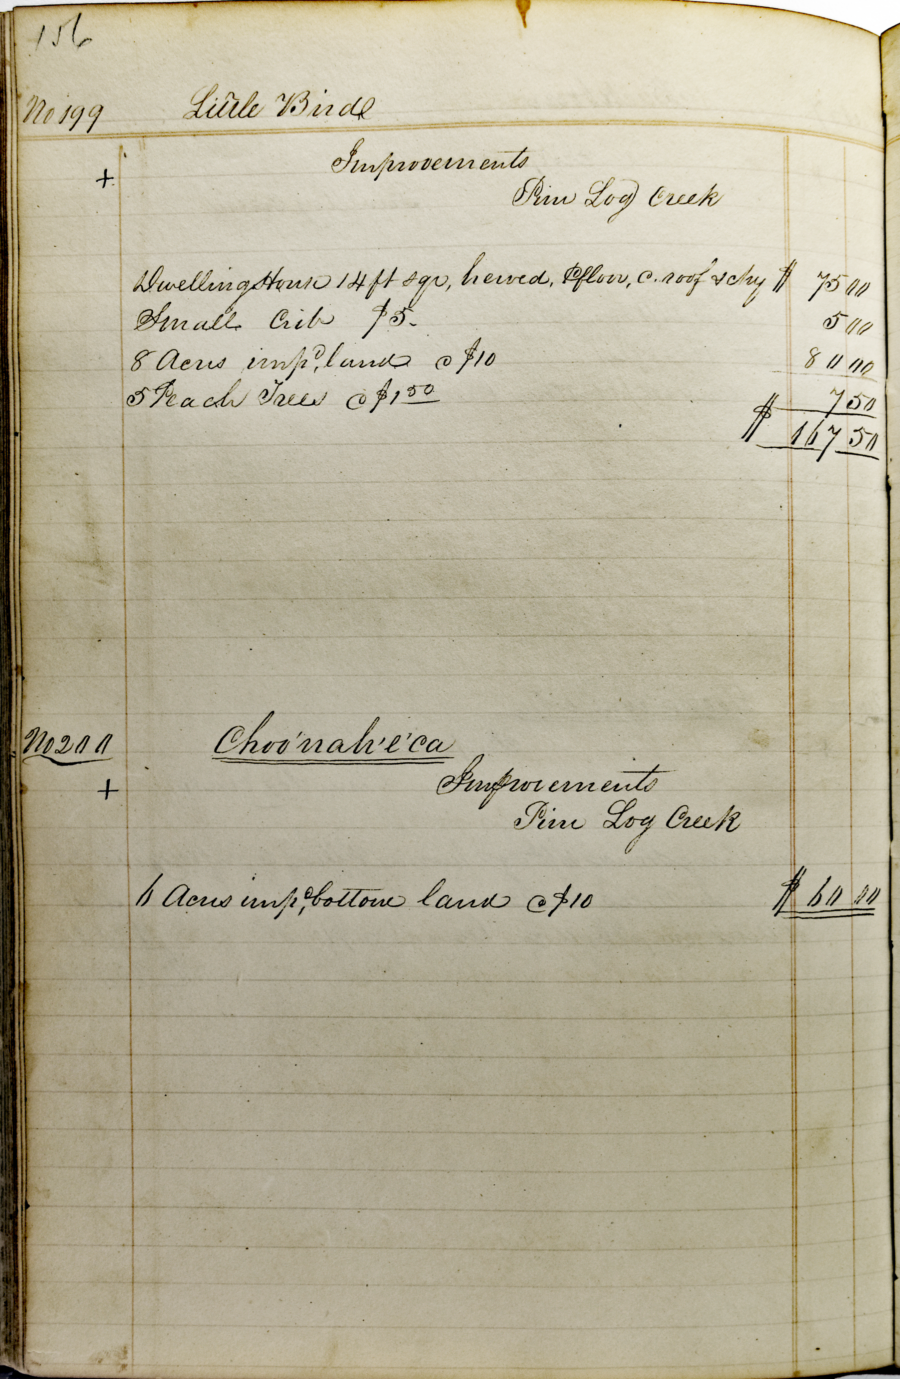 156
No 199 Little Bird
+ Improvements
Pine Log Creek
Dwelling House 14 ft sqr, hewed, pfloor, c. roof & chy $ 75 00
Small Crib $5- 5 00
8 Acres impd, land @ $10 80 00
5 Peach Trees @ $1 50 7 50
$ 167 50
No 200 Choo'nah'e'ca
+ Improvements
Pine Log Creek
6 Acres impd, bottom land @ $10 $ 60 00